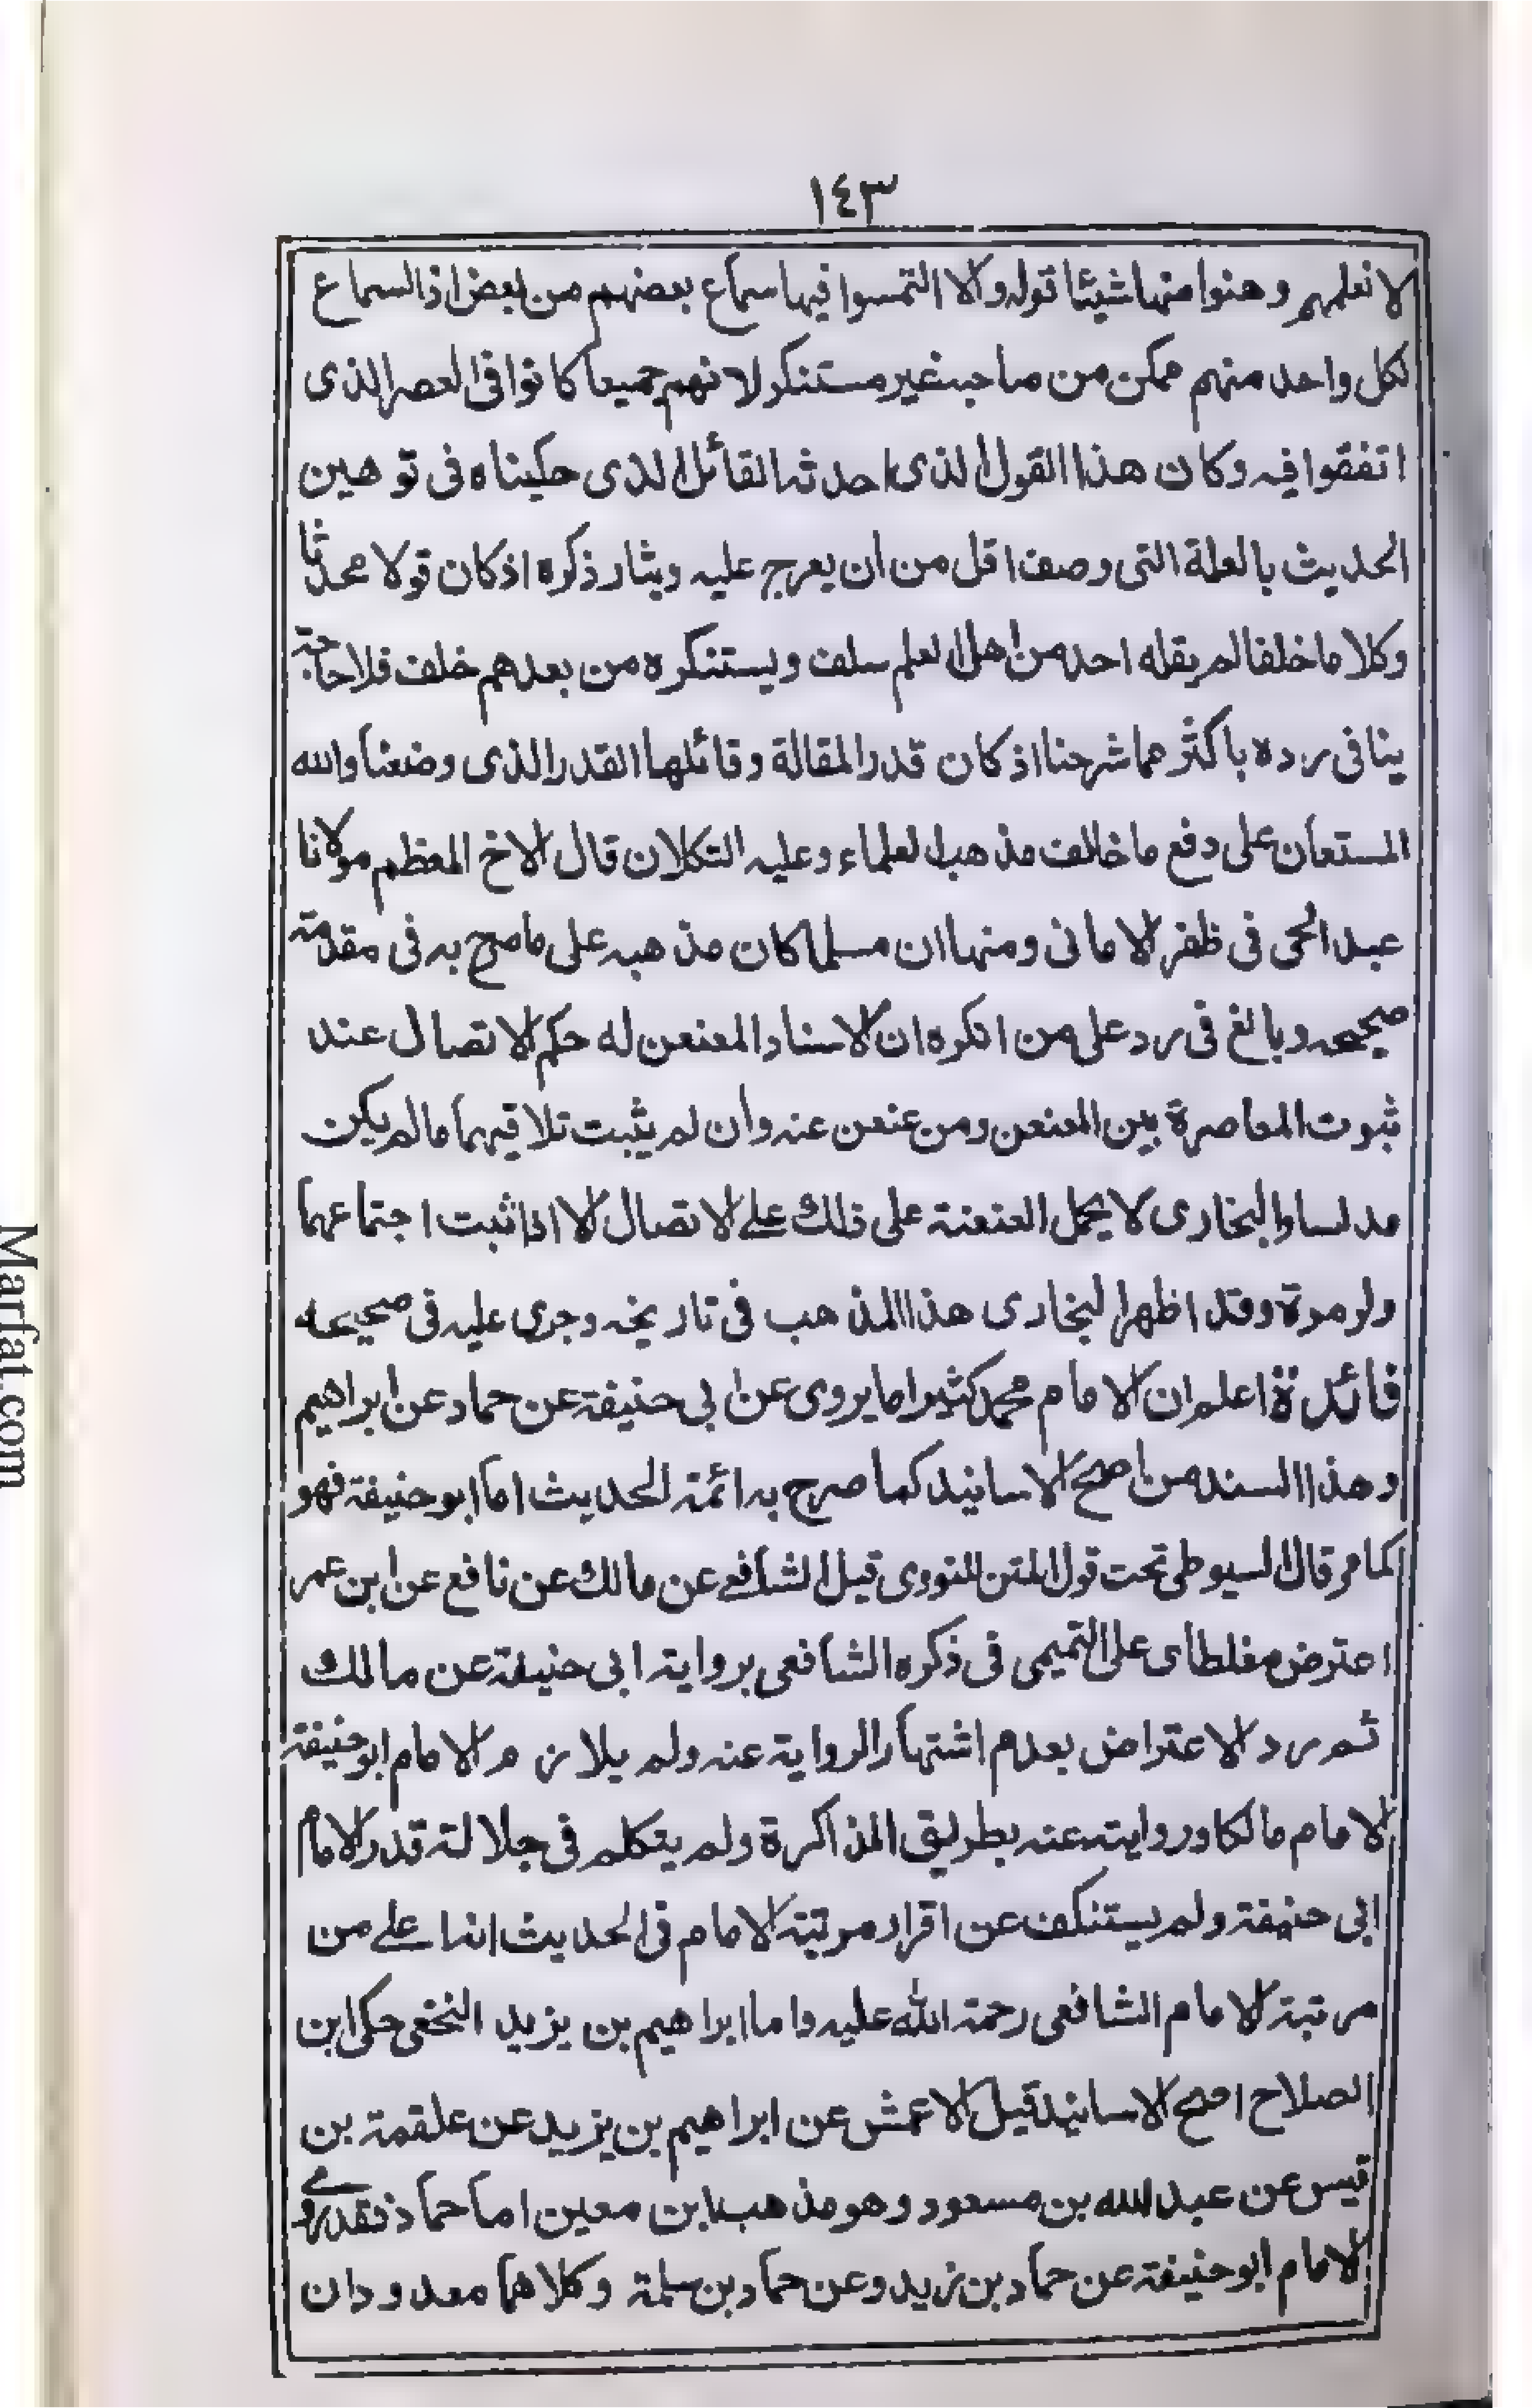 ١٤٣
لا نعلمهم وهنوا منها شيئا قوله ولا التمسوا فيها سماع بعضهم من بعض اذالسماع
لكل واحد منهم ممكن من صاحبه غير مستنكر لانهم جميعا كانوا فى العصر الذى
اتفقوا فيه وكان هذا القول الذى احدثه القائل الذى حكيناه فى توهين
الحديث بالعلة التى وصف اقل من ان يعرج عليه ويثار ذكره اذ كان قولا محدثا
وكلاما خلفا لم يقله احد من اهل العلم سلف ويستنكره من بعدهم خلف فلا حاجة
بنا فى رده باكثر مما شرحنا اذ كان قدر المقالة وقائلها القدر الذى وضعنا والله
المستعان على دفع ما خالف مذهب العلماء وعليه التكلان قال الاخ المعظم مولانا
عبد الحى فى ظفر الامانى ومنها ان مسلما كان مذهبه على ما صرح به فى مقدمة
صحيحه وبالغ فى رد على من انكره ان الاسناد المعنعن له حكم الاتصال عند
ثبوت المعاصرة بين المعنعن ومن عنعن عنه وان لم يثبت تلاقيهما ما لم يكن
مدلسا والبخارى لا يحمل العنعنة على ذلك على الاتصال الا اذا ثبت اجتماعهما
ولو مرة وقد اظهر البخارى هذا المذهب فى تاريخه وجرى عليه فى صحيحه
فائدة اعلم ان الامام محمد كثيرا ما يروى عن ابى حنيفة عن حماد عن ابراهيم
وهذا السند من اصح الاسانيد كما صرح به ائمة الحديث اما ابو حنيفة فهو
كما مر قال السيوطى تحت قول المتن للنووى قيل الشافعى عن مالك عن نافع عن ابن عمر
اعترض مغلطاى على التميمى فى ذكره الشافعى برواية ابى حنيفة عن مالك
ثم رد الاعتراض بعدم اشتهار الرواية عنه ولم يلازم الامام ابو حنيفة
الامام مالكا وروايته عنه بطريق المذاكرة ولم يتكلم فى جلالة قدر الامام
ابى حنيفة ولم يستنكف عن اقرار مرتبة الامام فى الحديث انها على من
مرتبة الامام الشافعى رحمة الله عليه واما ابراهيم بن يزيد النخعى حكى ابن
الصلاح اصح الاسانيد قيل الاعمش عن ابراهيم بن يزيد عن علقمة بن
قيس عن عبد الله بن مسعود وهو مذهب ابن معين اما حماد فقد روى
الامام ابو حنيفة عن حماد بن زيد وعن حماد بن سلمة وكلاهما معدودان
Marfat.com